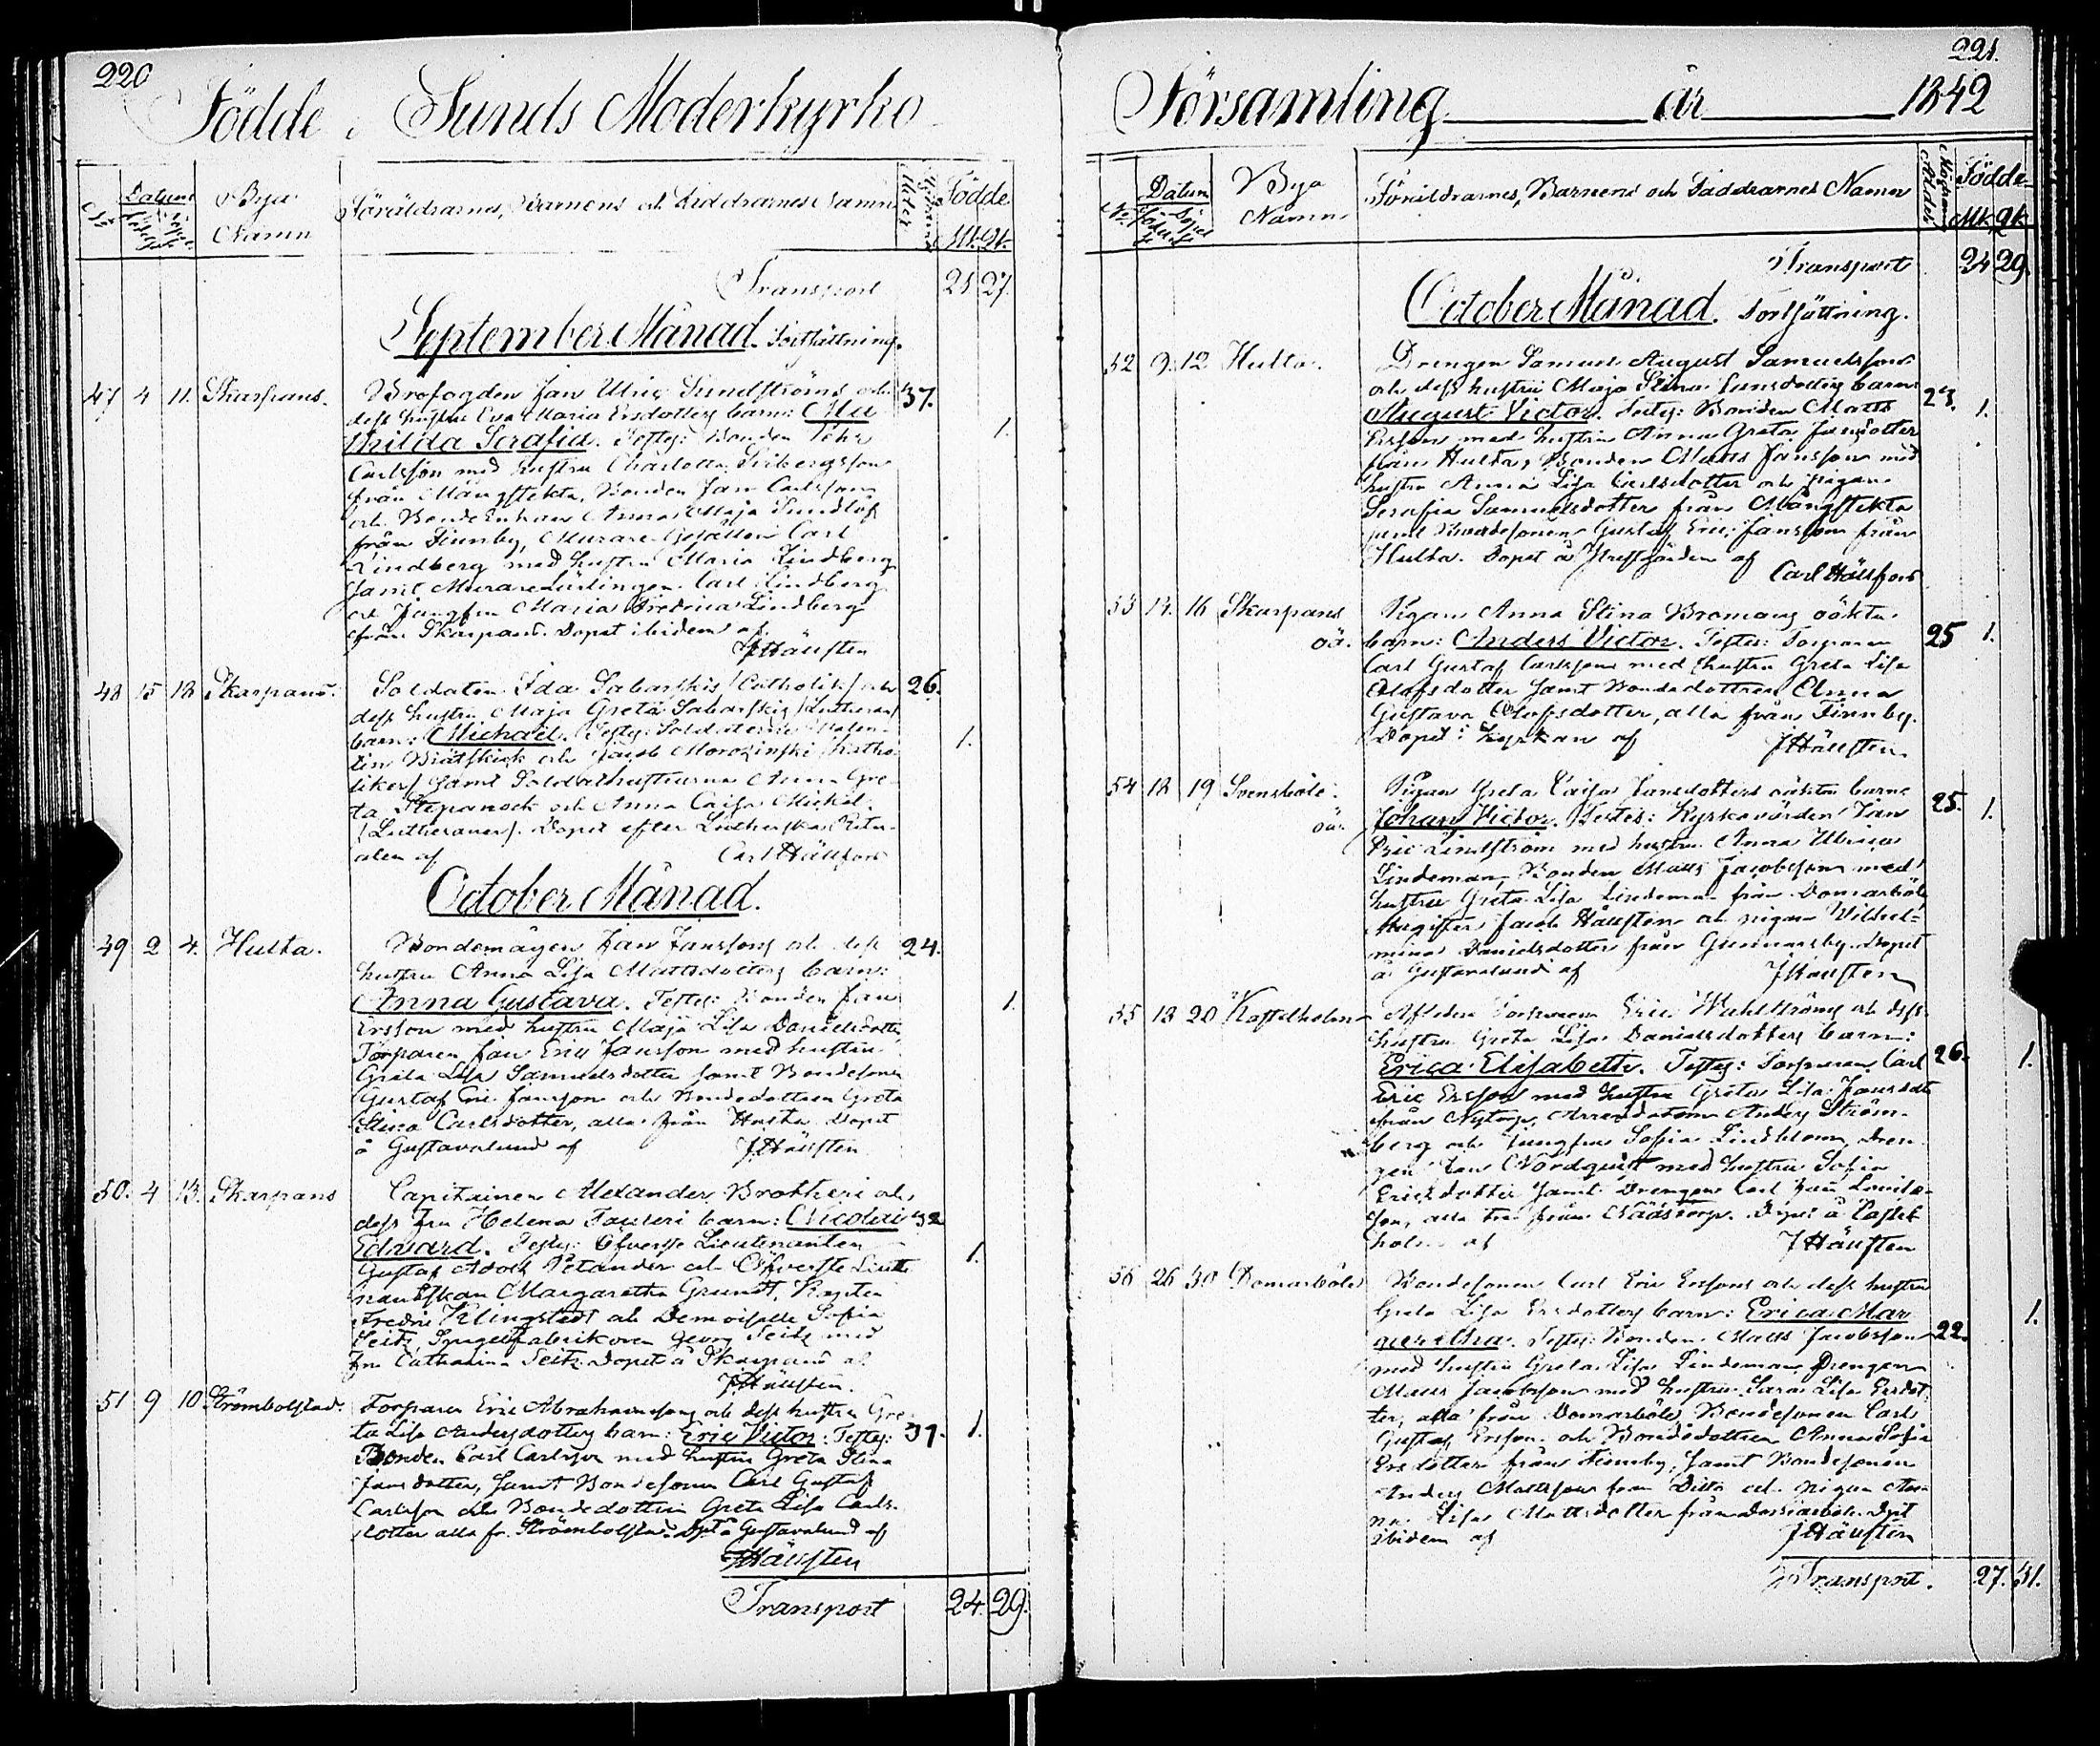 220
Födde i Sunds Moderkyrko
No Datum Bya Namn Föräldrarnes, Barnens och Faddrarnes Namn Modrens Ålder Födde Mk. Qk.
Transport 21 27.
September Månad. Fortsättning.
47 4 11. Skarpans. Brofogden Jan Ulric Sundströms och 37.
dess hustru Eva Maria Ersdotters barn:
Mathilda Serafia. Testes: Bonden Pehr 1.
Carlsson med hustru Charlotta
från Mångstekta, Bonden Jan Carlsson
och Bondeenkan Anna Maja Sundlöf
från Finnby, Murare Gesällen Carl
Lindberg med hustru Maria Lindberg
samt Murare Lärlingen Carl Lindberg
och Jungfru Maria Fredrica Lindberg
från Skarpans. Döpt ibidem af
JHäusten
48 15 18 Skarpans. Soldaten Ida Sabarskis /Catholik/ och 26.
dess hustru Maja Greta Sabarskis /Lutheran/
barn: Michael. Testes: Soldaterne Valen- 1.
tin och Jacob Morozinski /Katho-
liker/ samt Soldathustrurna Anna Gre-
ta Stepanock och Anna Caisa Michel.
/Lutheraner/. Döpt efter Lutherska Ritu-
alen af Carl Hällfors
October Månad.
49 2 4. Hulta. Bondemågen Jan Janssons och dess 24.
hustru Anna Lisa Mattsdotters barn:
Anna Gustava. Testes: Bonden Jan 1.
Ersson med hustru Maja Lisa Danielsdotter
Torparen Jan Eric Jansson med hustru
Greta Lisa Samuelsdotter samt Bondesonen
Gustaf Eric Jansson och Bondedottren Greta
Stina Carlsdotter, alla från Hulta. Döpt
å Gustavalund af JHäusten
50. 4 13. Skarpans Capitainen Alexander Brotheri och
dess fru Helena Fauleri barn: Nicolai 32
Edvard. Testes: Öfverste Lieutenanten 1.
Gustaf Adolf Petander och Öfverste Lieute
nantskan Margaretha Grundt, Kapten
Fredric Klingstedt och Demoiselle Sofia
Seitz, Spegelfabrikoren Georg Seitz med
fru Catharina Seitz. Döpt å Skarpans af
JHäusten.
51 9 10 Strömbolstad. Torparen Eric Abrahamssons och dess hustru Gre
ta Lisa Andersdotters barn: Eric Victor. Testes: 31. 1.
Bonden Carl Carlsson med hustru Greta Stina
Jansdotter, samt Bondesonen Carl Gustaf
Carlsson och Bondedottren Greta Lisa Carls-
dotter alla fr. Strömbolstad. Döpt å Gustavalund af
JHäusten
Transport 24. 29.
221.
Församling år 1842
No Datum Bya Namn Föräldrarnes, Barnens och Faddrarnes Namn Modrens Ålder Födde Mk. Qk.
Transport 24 29.
October Månad. Fortsättning.
52 9. 12 Hulta. Drengen Samuel August Samuelssons
och dess hustru Maja Stina Jansdotters barn
August Victor. Testes: Bonden Matts 23. 1.
Ersson med hustru Anna Greta Jansdotter
från Hulta, Bonden Matts Jansson med
hustru Anna Lisa Carlsdotter och pigan
Serafia Samuelsdotter från Mångstekta
samt Bondesonen Gustaf Eric Jansson från
Hulta. Döpt å Prestgården af
Carl Hällfors
53 14. 16 Skarpans Pigan Anna Stina Bromans oäkta
oä. barn: Anders Victor. Testes: Torparen 25 1.
Carl Gustaf Carlsson med hustru Greta Lisa
Olofsdotter samt Bondedottren Anna
Gustava Olofsdotter, alla från Finnby.
Döpt i Kyrkan af JHäusten
54 18 19 Svensböle. Pigan Greta Caisa Jansdotters oäkta barn
oä. Johan Victor. Testes: Kyrkovärden Jan 25. 1.
Eric Lindström med hustru Anna Ulrica
Lindeman, Bonden Matts Jacobsson med
hustru Greta Lisa Lindeman från Domarböle
Magister Jacob Häusten och pigan Wilhel-
mina Danielsdotter från Gunnarsby. Döpt
å Gustavalund af JHäusten
55 18 20 Kastelholm Afskedade Torparen Eric Wahlströms och dess
hustru Greta Lisa Danielsdotters barn:
Erica Elisabeth. Testes: Torparen Carl 26. 1.
Eric Ersson med hustru Greta Lisa Jansdott
från Nytorp, Arrendatorn Anders Ström-
berg och Jungfru Sofia Lindblom, Dren-
gen Jan Nordquist med hustru Sofia
Ericsdotter samt Drengen Carl Jan Daniels-
son, alla tre från Näästorp. Döpt å Castel-
holm af JHäusten
56 26 30 Domarböle Bondesonen Carl Eric Erssons och dess hustru
Greta Lisa Ersdotters barn: Erica Mar 1.
garetha. Testes: Bonden Matts Jacobsson 22.
med hustru Greta Lisa Lindeman, Drengen
Matts Jacobsson med hustru Sara Lisa Ersdot
ter, alla från Domarböle, Bondesonen Carl
Gustaf Ersson och Bondedottren Anna Sofia
Ersdotter från Finnby, samt Bondesonen
Anders Mattsson från Ditto och pigan An-
na Lisa Mattsdotter från Domarböle. Döpt
ibidem af JHäusten
Transport. 27. 31.